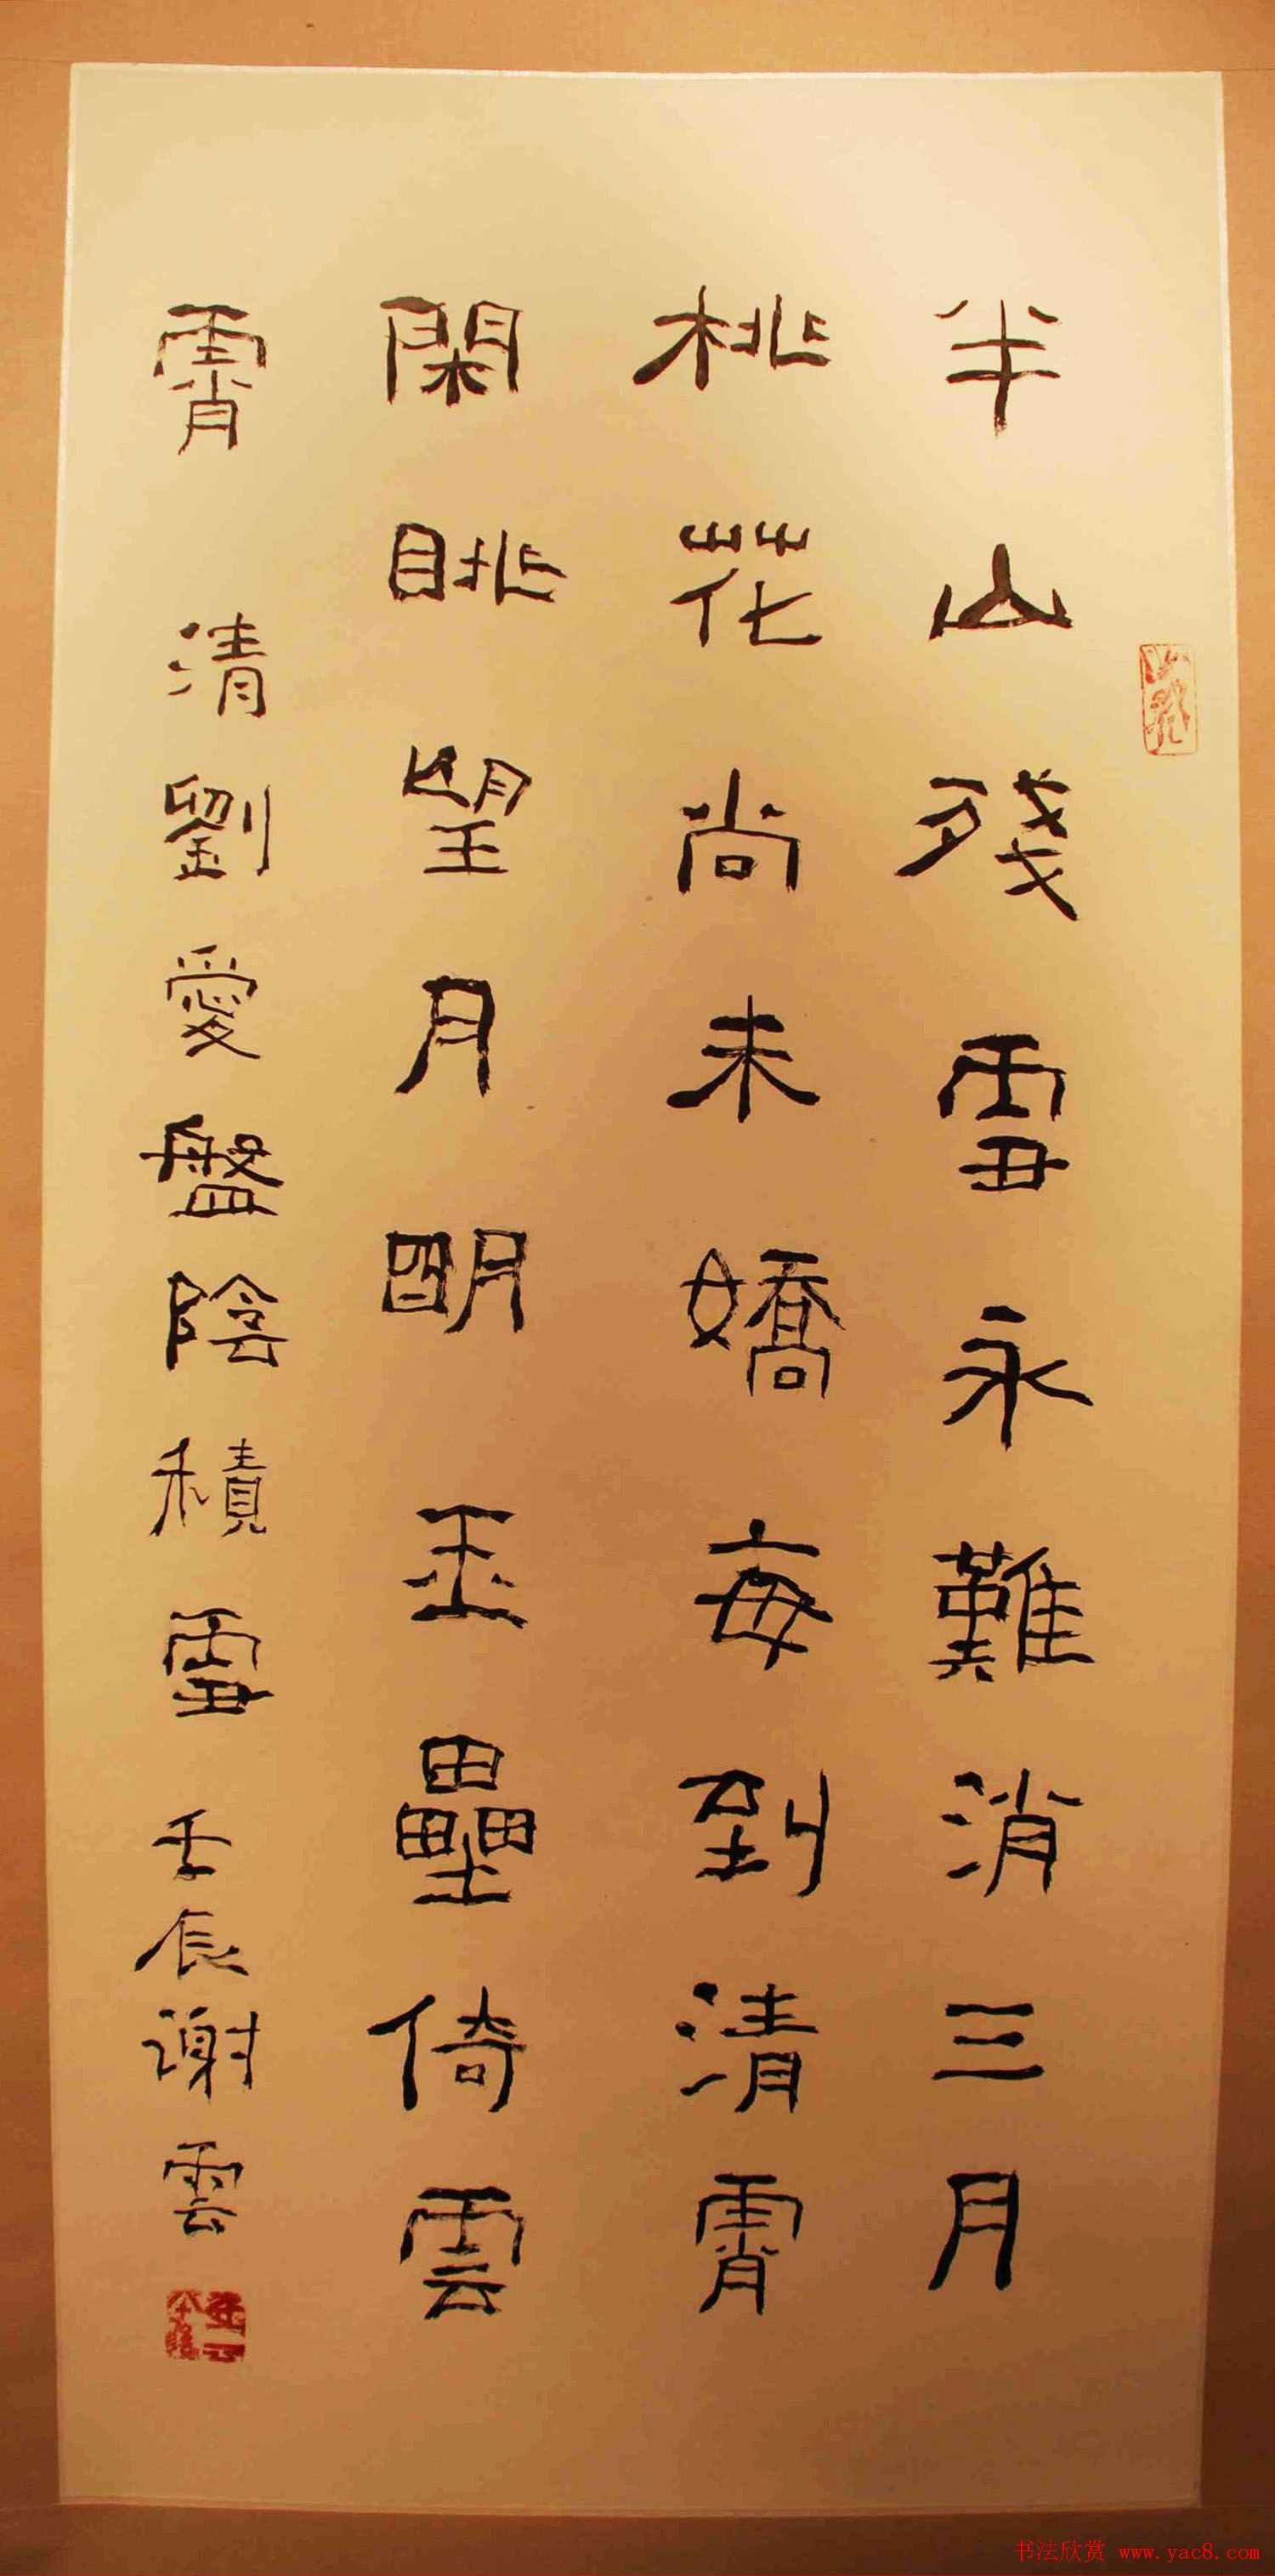 半山殘雪永難消三月
桃花尚未嬌每到清霄
閑眺望月明玉壘倚雲
霄 清劉愛盤陰積雪壬辰谢雲
书法欣赏 www.yac8.com